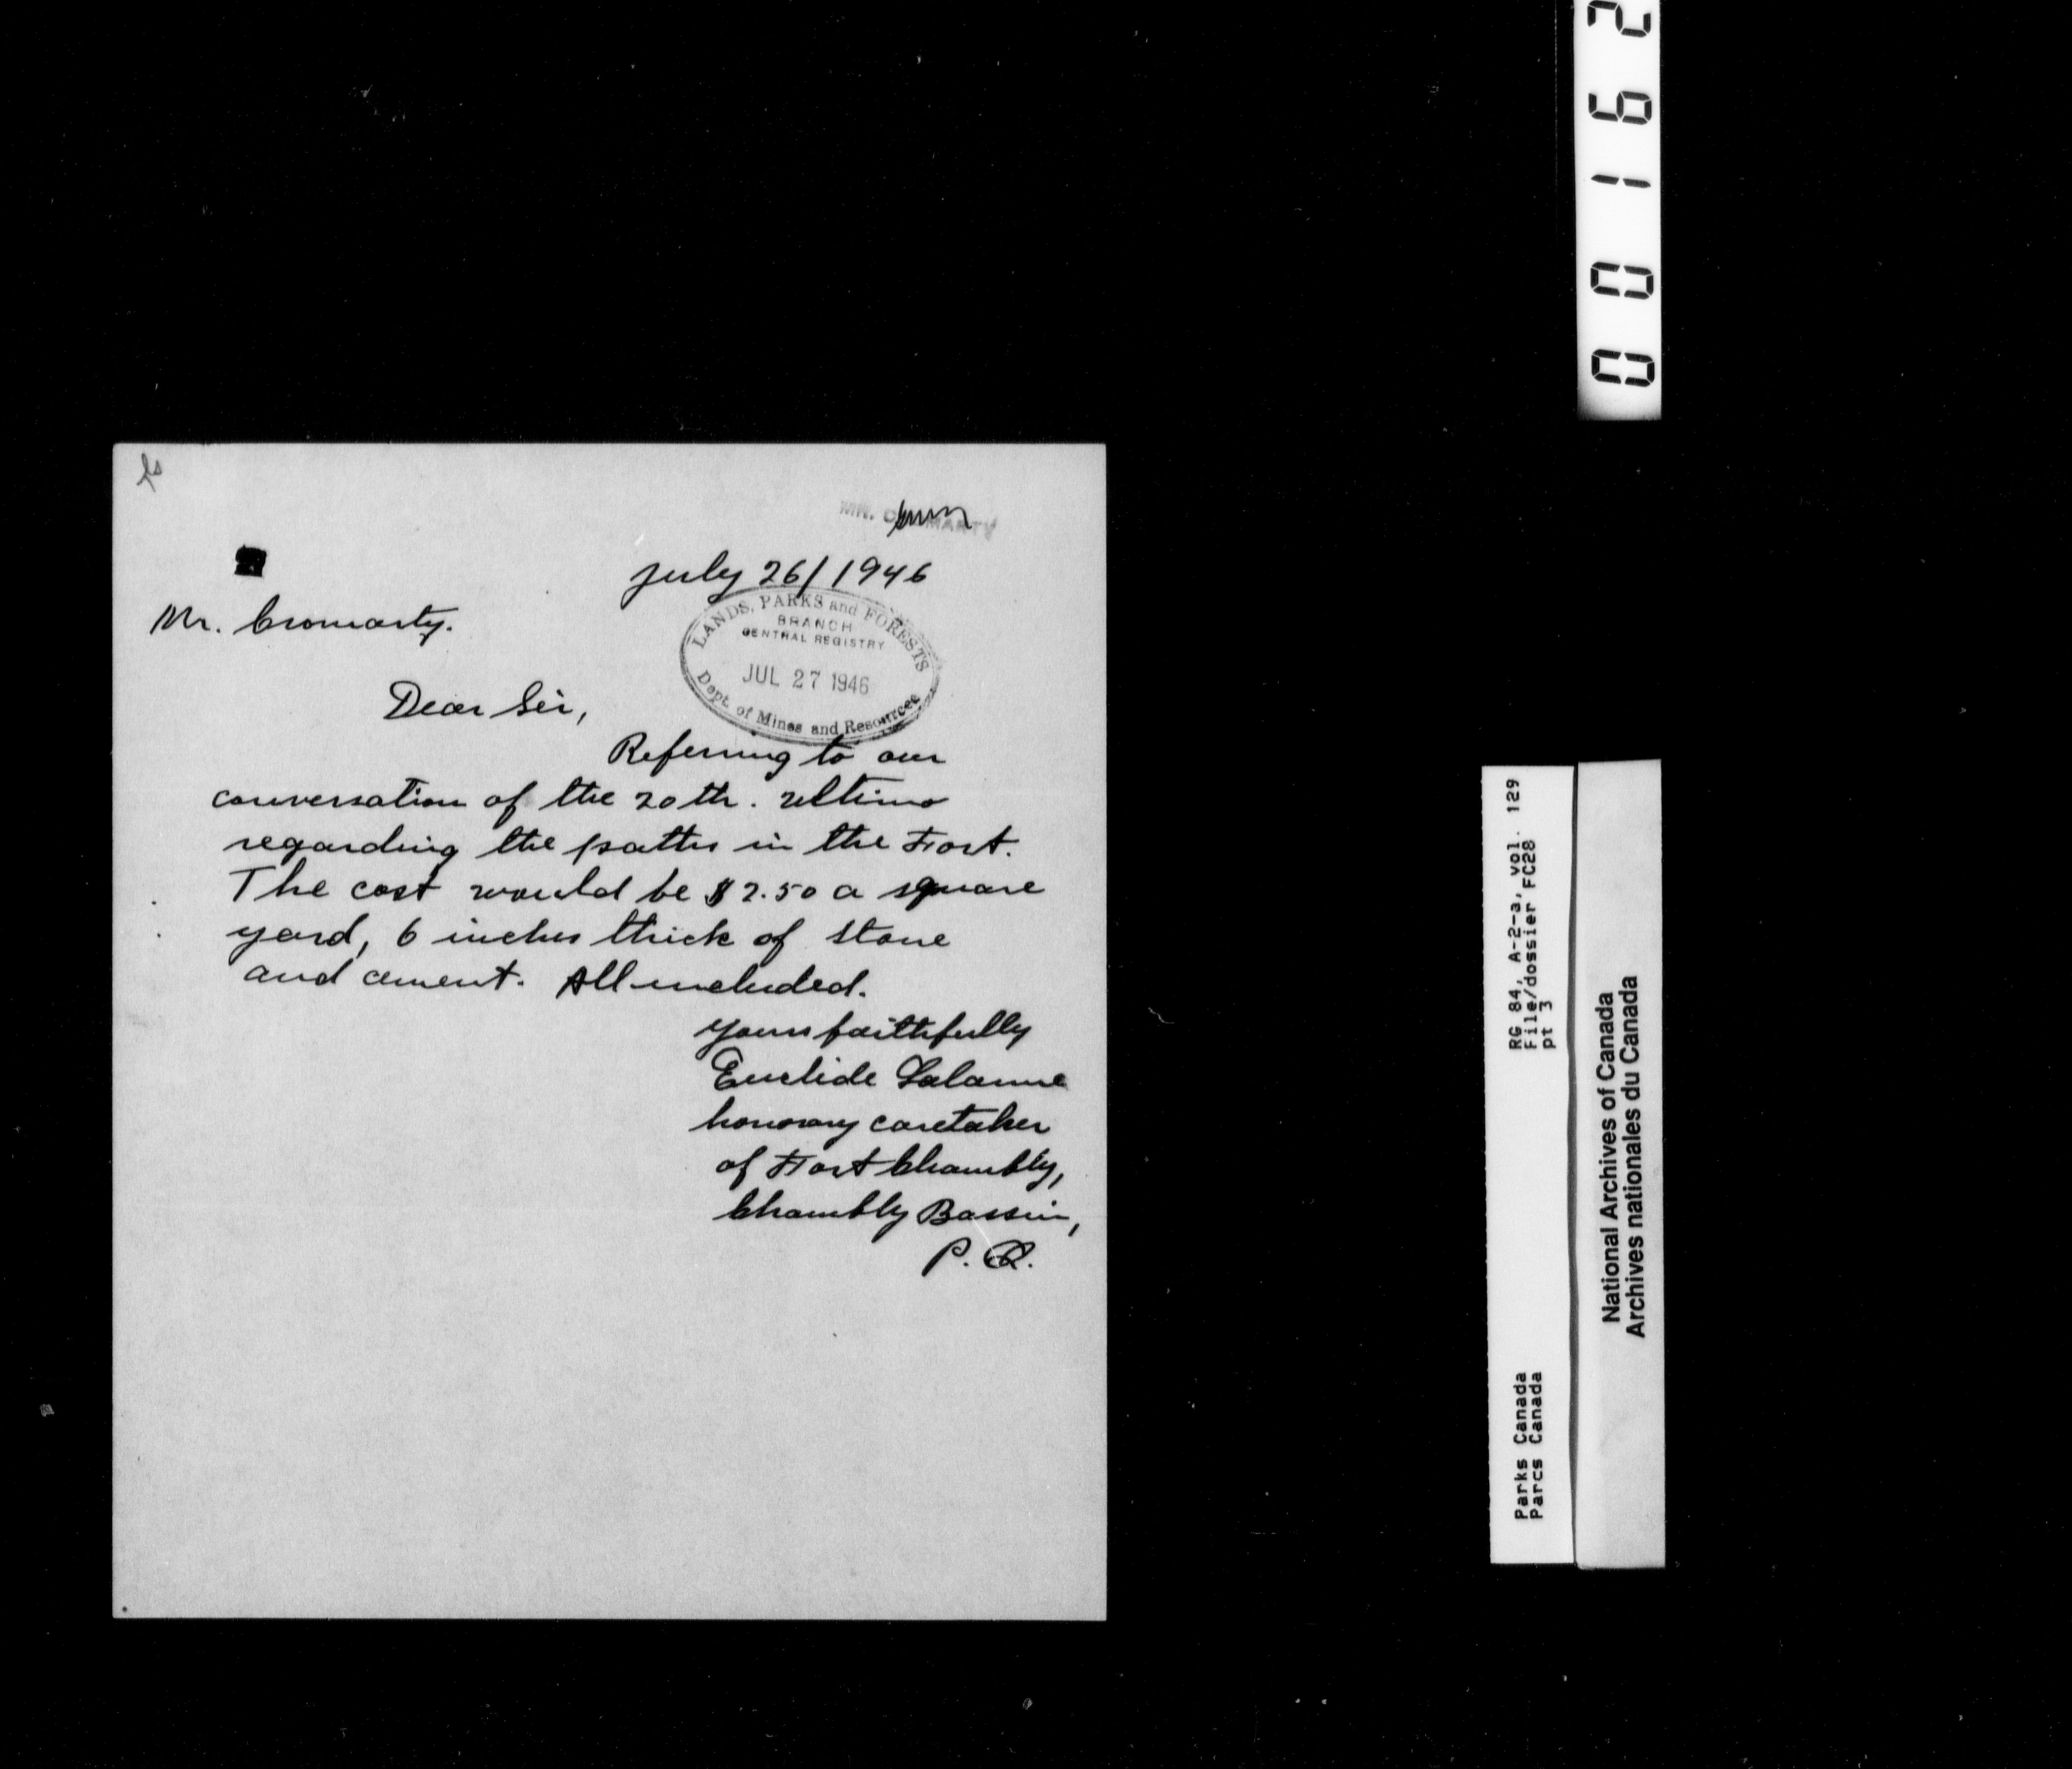 MR. CROMARTY
July 26/1946
LANDS, PARKS and FORESTS
BRANCH
CENTRAL REGISTRY
JUL 27 1946
Dept. of Mines and Resources
Mr. Cromarty.
Dear Sir,
Referring to our
conversation of the 20th. ultimo
regarding the paths in the Fort.
The cost would be $2.50 a square
yard, 6 inches thick of stone
and cement. All included.
Yours faithfully
Euclide Lalanne
honorary caretaker
of Fort Chambly,
Chambly Bassin,
P. Q.
0 0 1 6 2
RG 84, A-2-a, vol. 129
File/dossier FC28
pt 3
Parks Canada
Parcs Canada
National Archives of Canada
Archives nationales du Canada